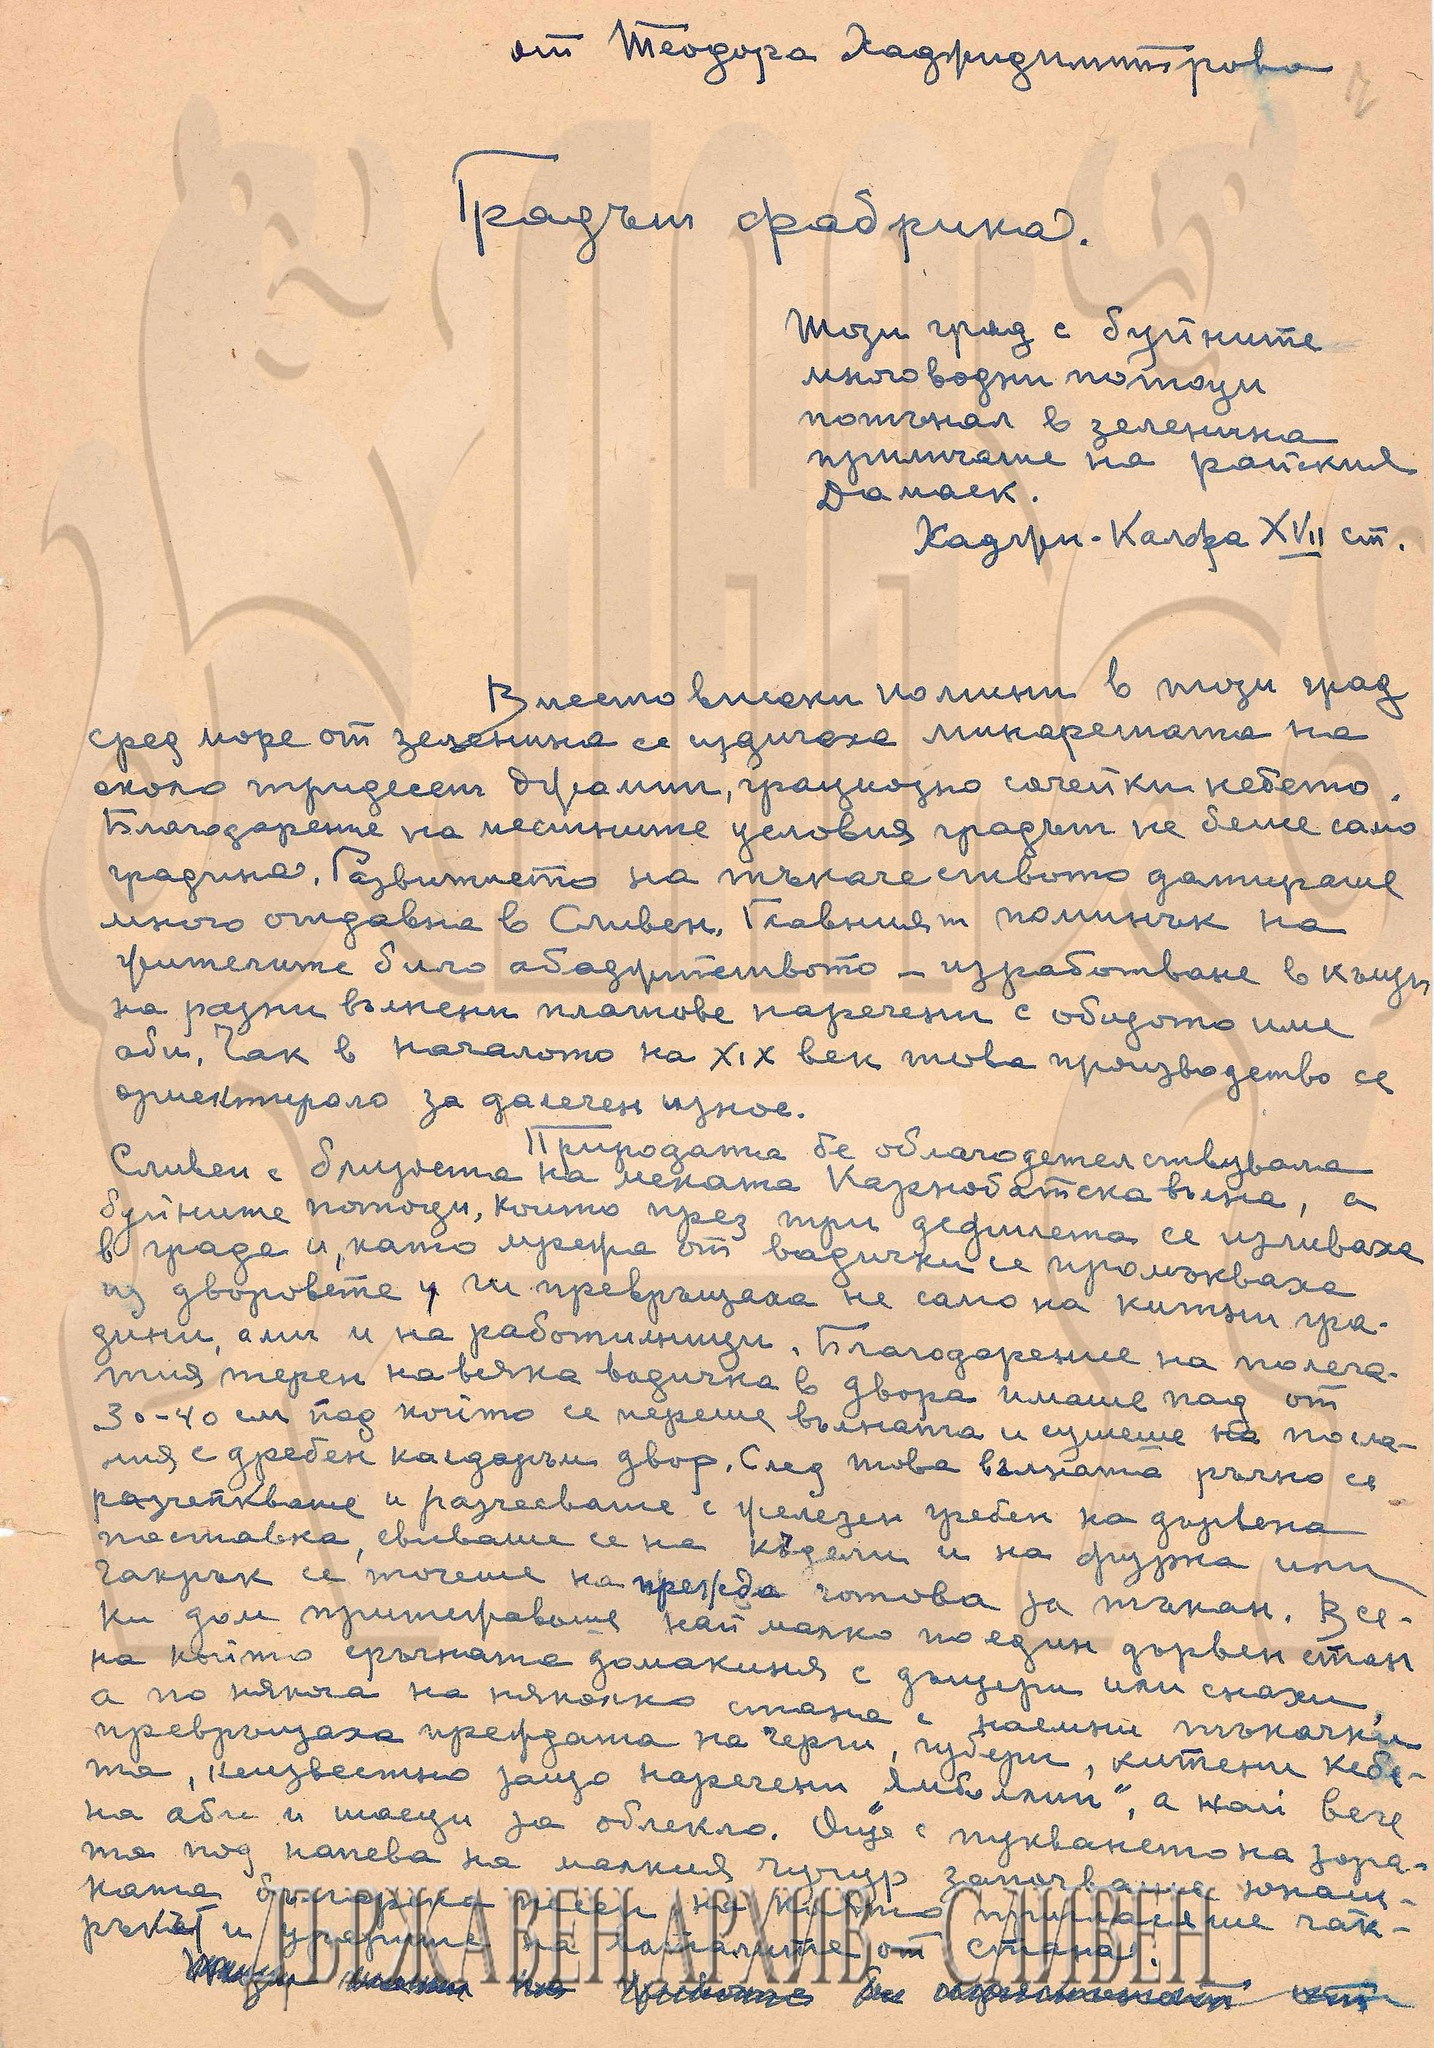 от Теодора Хаджидимитрова
Градът фабрика.
Този град с буйните
многоводни потоци
потънал в зеленина
приличаше на райския
Дамаск.
Хаджи-Калфа XVII ст.
Вместо високи комини в този град
сред море от зеленина се издигаха минаретата на
около тридесет джамии, грациозно сочейки небето.
Благодарение на местните условия градът не беше само
градина. Развитието на тъкачеството датираше
много отдавна в Сливен. Главният поминък на
жителите било абаджийството – изработване в къщи
на разни вълнени платове наречени с общото име
аби. Чак в началото на XIX век това производство се
ориентирало за далечен износ.
Природата бе облагодетелствувала
Сливен с близоста на меката Карнобатска вълна, а
буйните потоци, които през три дефилета се изливаха
в града и, като мрежа от вадички се промъкваха
из дворовете и ги превръщаха не само на китни гра-
дини, али и на работилници. Благодарение на полега-
тия терен на всяка водичка в двора имаше пад от
30-40 см под който се переше вълната и сушеше на посла-
ния с дребен калдаръм двор. След това вълната ръчно се
разчепкваше и разчесваше с железен гребен на дървена
поставка, свиваше се на къдели и на фурка или
чакрък се точеше на прежда готова за тъкан. Все-
ки дом притежаваше най малко по един дървен стан
на който сръчната домакиня с дъщери или снахи,
а по някога на няколко стана с наемни тъкачки
превръщаха преждата на черги, губери, китени кебе-
та, неизвестно защо наречени "ямболии", а най вече
на аби и шаеци за облекло. Още с пукването на зора-
та под напева на малкия чучур започваше
ката българска песен, на която пригласяше чак-
ръкът и ударите на от стана.
на от
ДЪРЖАВЕН АРХИВ СЛИВЕН